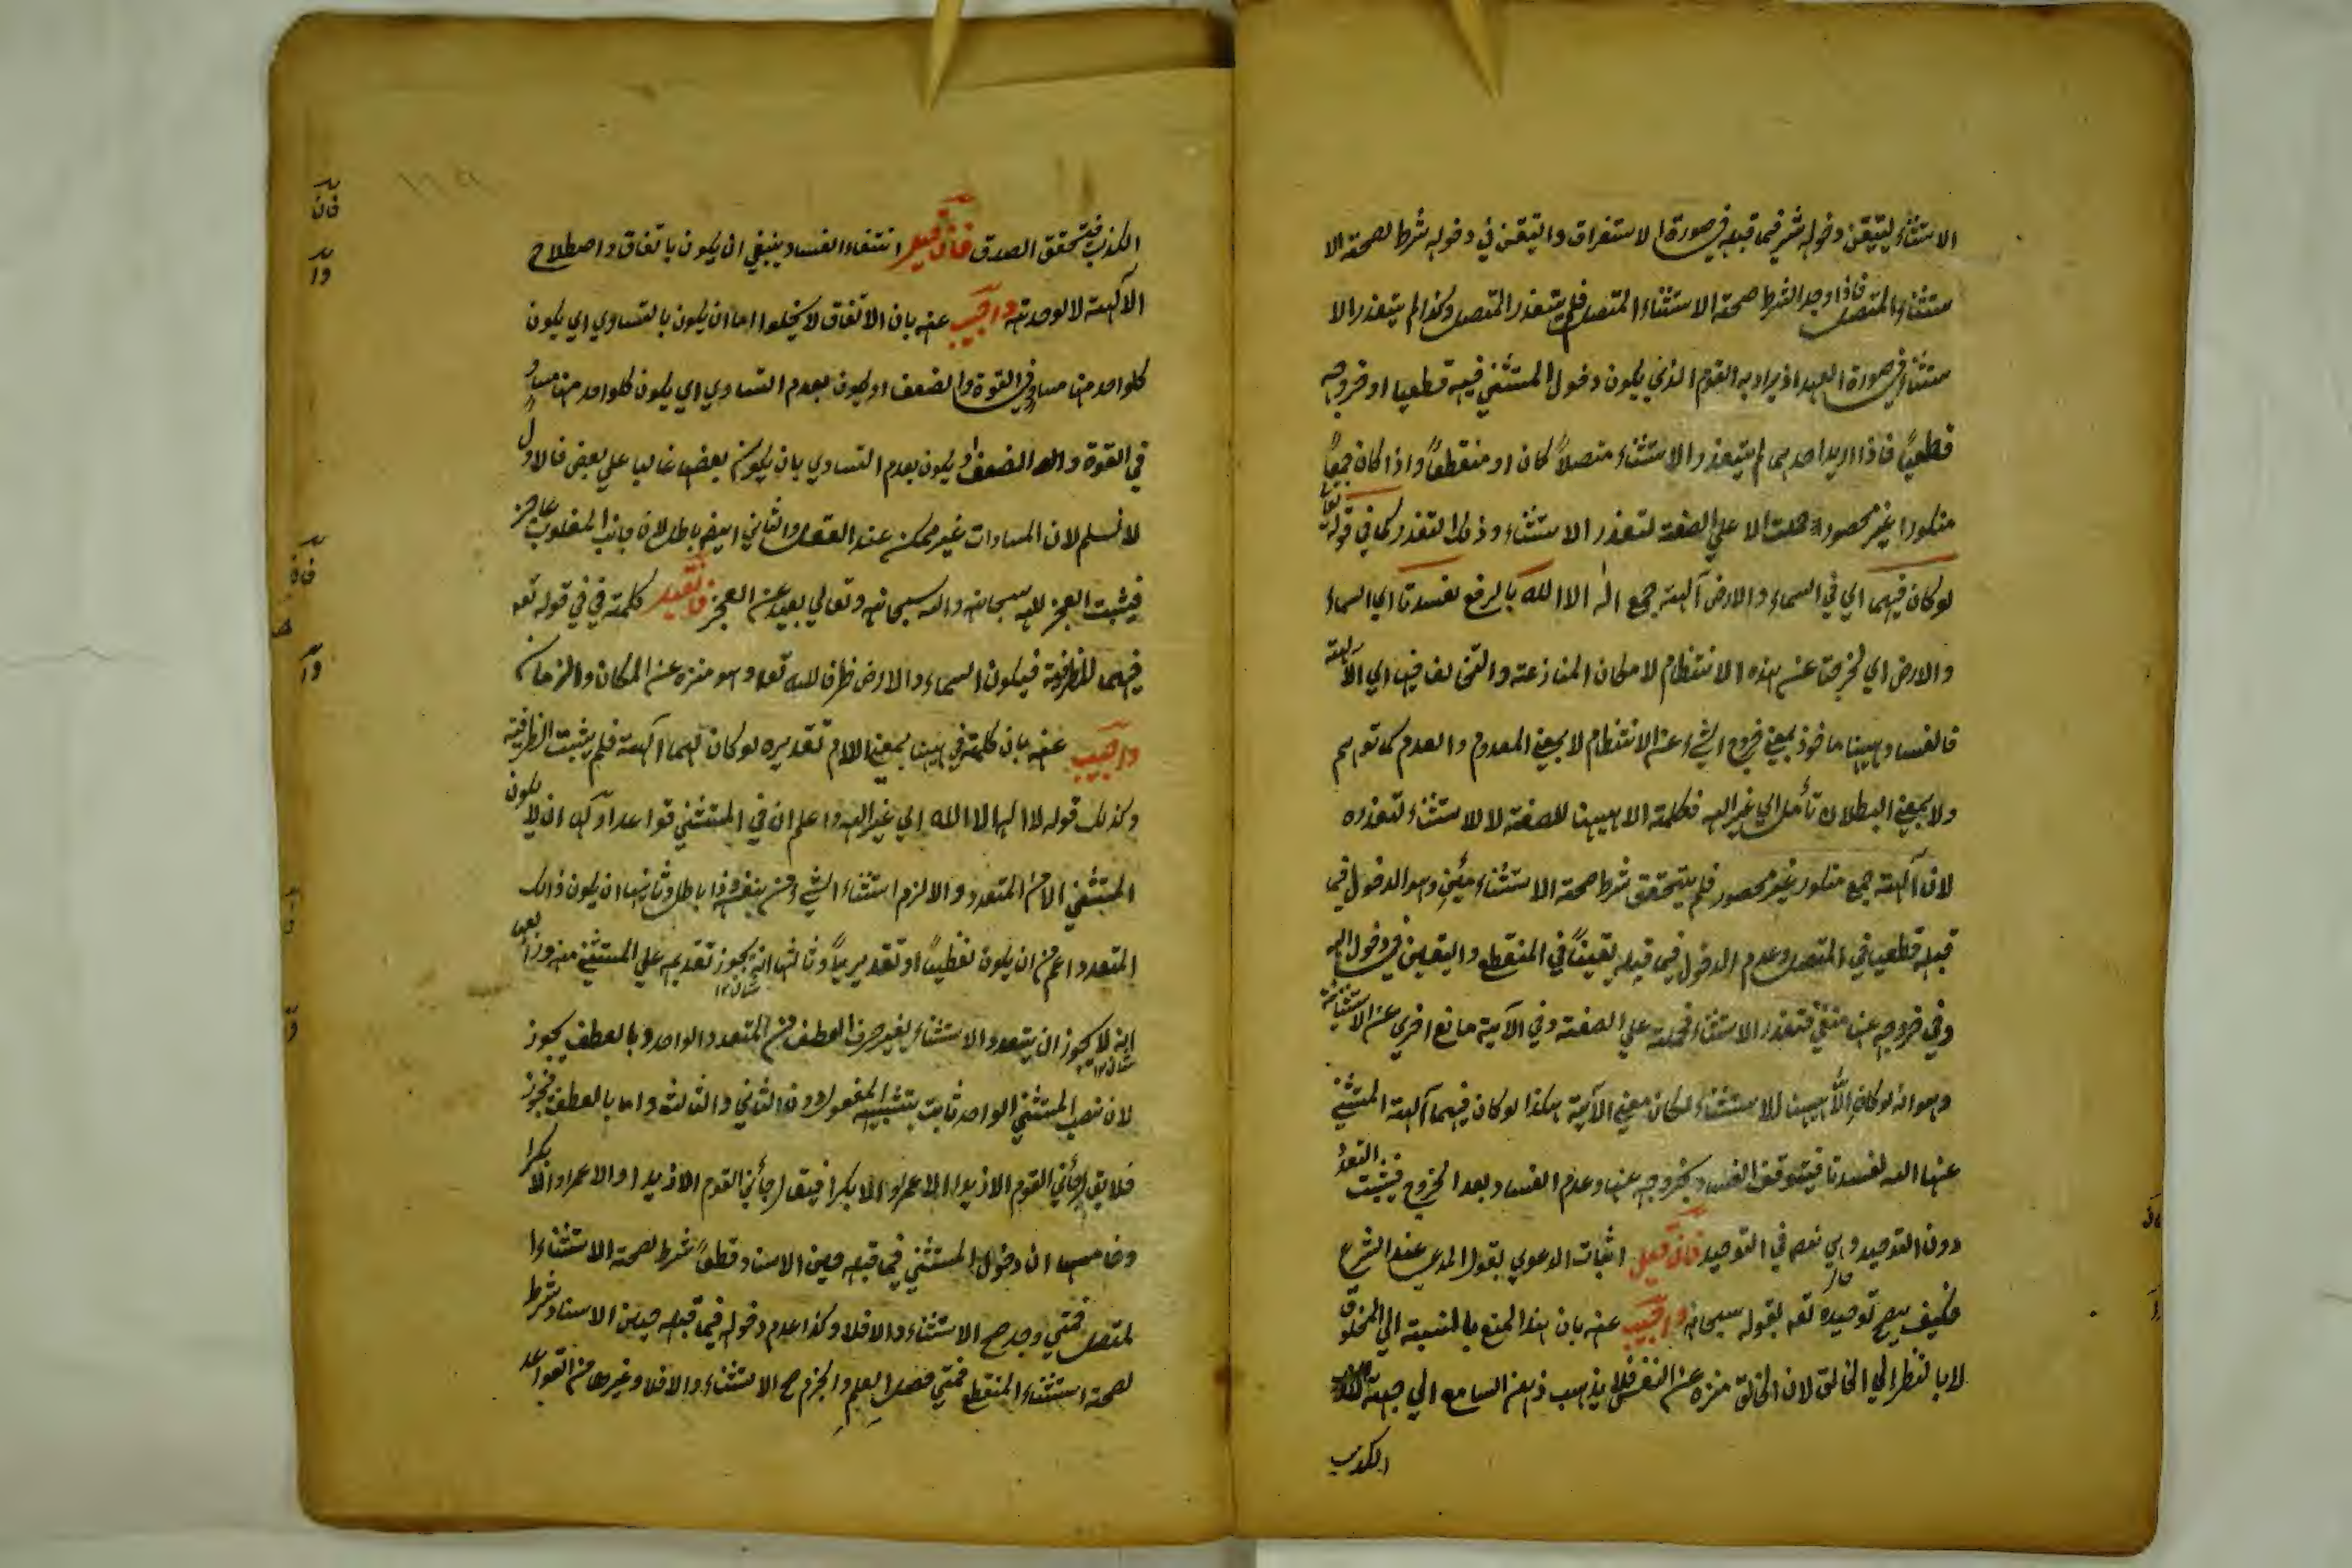 الاستثناء ليتيقن دخوله شرفيما قبله في صورة الاستغراق والتيقن في دخوله شرط لصحة الا
ستثناء المتصل فاذا وجد الشرط صحة الاستثناء المتصل فلم يتعذر المتصل وكذا لم يتعذر الا
ستثناء في صورة العهد اذ يراد به القوم الذي يكون دخول المستثنى فيه قطعيا او خروجه
قطعياً فاذا اريد احدهما لم يتعذر الاستثناء متصلاً كان او منقطعاً واذا كان جمعاً
منكورا غير محصورة حملت الا على الصفة لتعذر الاستثناء وذلك التعذر كما في قوله تعالى
لوكان فيهما اي في السماء والارض آلهة جمع اله الا الله بالرفع لفسدتا اي السماء
والارض اي لخرجتا عن هذه الانتظام لامكان المنازعة والتخالف فيها اي الآلهة
فالفساد ههنا ماخوذ بمعنى خروج الشيء عن الانتظام لا بمعنى المعدوم والعدم كما توهم
ولا بمعنى البطلان تأمل اي غير الله فكلمة الا ههنا للصفة لا للاستثناء لتعذره
لان آلهة جمع منكور غير محصور فلم يتحقق شرط صحة الاستثناء وهو الدخول فيما
قبله قطعيا في المتصل وعدم الدخول فيما قبله يقيناً في المنقطع واليقين في دخول الله
وفي خروجه عنها منتفي فتعذر الاستثناء فحملت على الصفة وفي الآية مانع اخرى عن الاستثنائية
وهو انه لو كان الا ههنا للاستثناء لكان معنى الآية هكذا لوكان فيهما آلهة المستثنى
عنها الله لفسدتا فيتوقف الفساد بخروجه عنها وعدم الفساد بعد الخروج فيثبت التعدد
دون التوحيد وهي نص في التوحيد فان قيل اثبات الدعوي بقول المدعي عند الشرع
فكيف يصح توحيده تعه بقوله سبحانه واجيب عنه بان هذا المنع بالنسبة الى المخلوق
لا بالنظر الى الخالق لان الخالق منزه عن النقص فلا يذهب ذهن السامع الى جهة
الكذب
الكذب فيتحقق الصدق فان قيل انتفاء الفساد ينبغي ان يكون باتفاق واصطلاح
الآلهة لا لوحدته واجيب عنه بان الاتفاق لا يخلوا اما ان يكون بالتساوي اي يكون
كلواحد منها مساو في القوة والضعف او يكون بعدم التساوي اي يكون كلواحد منها مساو
في القوة والضعف او يكون بعدم التساوي بان يكون بعضها غالبا على بعض فالاول
لا نسلم لان المساوات غير ممكن عند العقل والثاني ايضا باطل لان جانب المغلوب عاجز
فيثبت العجز لله سبحانه والله سبحانه وتعالى بعيد عن العجز فان قيل كلمة في في قوله تعه
فيهما للظرفية فيكون السماء والارض ظرفا لله تعا وهو منزه عن المكان والزمان
واجيب عنه بان كلمة في ههنا بمعنى اللام تقديره لوكان لهما آلهة فلم يثبت الظرفية
وكذلك قوله لا اله الا الله اي غير الله واعلم ان في المستثنى قواعد اولها ان لا يكون
المستثنى الا من المتعدد والا لزم استثناء الشيء من نفسه وذا باطل وثانيها ان يكون ذالك
المتعدد اعم من ان يكون لفظياً او تقديرياً وثالثها انه يجوز تقديمه على المستثنى منه ورابعها
انه لا يجوز ان يتعدد الاستثناء بغير حرف العطف من المتعدد الواحد وبالعطف يجوز
لان نصب المستثنى الواحد ثابت بتشبيه المفعول دون الثاني والثالث واما بالعطف فيجوز
فلا يقال جائني القوم الا زيدا الا عمروا الا بكرا فيقال جائني القوم الا زيدا والا عمروا والا بكرا
وخامسها ان دخول المستثنى فيما قبله حين الاسناد قطعاً شرط لصحة الاستثناء ا
لمتصل فمتى وجد صح الاستثناء والا فلا وكذا عدم دخوله فيما قبله حين الاسناد شرط
لصحة استثناء المنقطع فمتى حصل العلم والجزم صح الاستثناء والا فلا وغيرها من القواعد